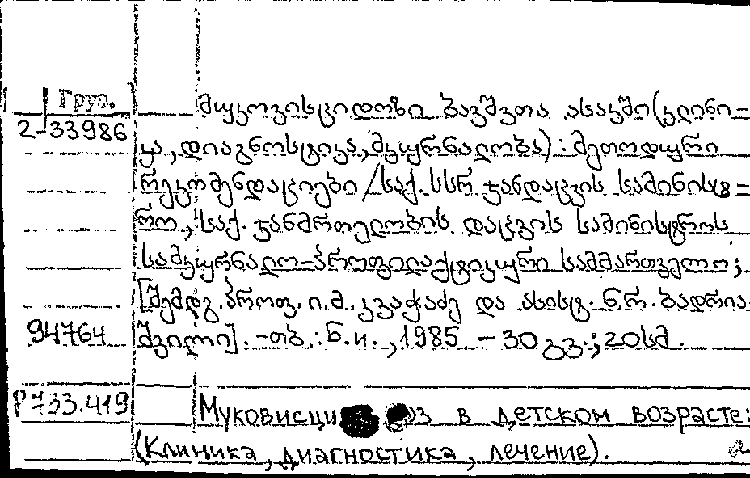 Груз.
2-33986
მუკოვისციდოზი ბავშვთა ასაკში (კლინი=
კა, დიაგნოსტიკა, მკურნალობა) : მეთოდური
რეკომენდაციები / საქ. სსრ ჯანდაცვის სამინისტ=
რო, საქ. ჯანმრთელობის დაცვის სამინისტროს
სამკურნალო-პროფილაქტიკური სამმართველო;
[შემდგ. პროფ. ი.მ. კვაჭაძე და ასისტ. ნ.რ. ბადრია
94764 შვილი]. -თბ. : ნ. ი., 1985 - 30 გვ.; 20 სმ.
Р733.419 Муковисци оз в детском возрасте:
(Клиника, диагностика, лечение).